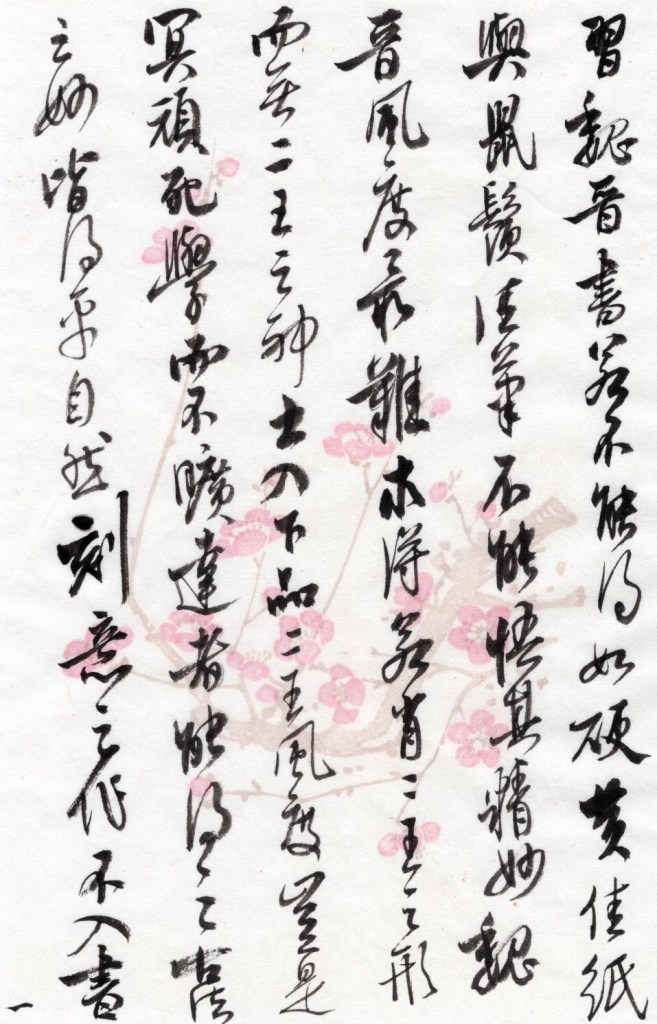 習魏晉書若不能得如硬黄佳紙
與鼠鬚佳筆不能悟其精妙魏
晉風度最難求得若肖二王之形
而無二王之神士入下品二王風度豈是
冥頑死學而不曠達者能得之古法
之妙皆得乎自然刻意之作不入書
一